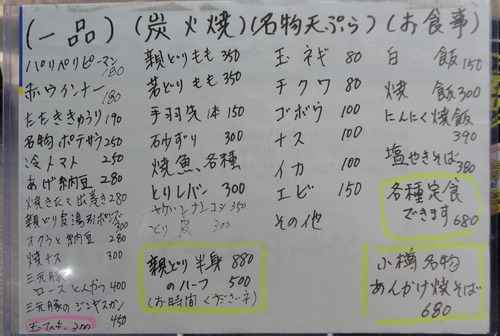 (一品)
パリパリピーマン 180
赤ウインナー 180
たたききゅうり 190
名物ポテサラ 250
冷トマト 250
あげ納豆 280
焼きたて出巻き 280
親どり皮湯引ポンズ 300
オクラと納豆 280
焼ナス 300
三元豚
ロースとんかつ 400
三元豚のジンギスカン 450
(炭火焼)
親どりもも 350
若どりもも 350
手羽先1本 150
石ずり 300
焼魚、各種
とりレバー 300
ヤゲンナンコツ 350
とり皮 300
親どり半身 880
のハーフ 500
(お時間ください)
(名物天ぷら)
玉ネギ 80
チクワ 80
ゴボウ 100
ナス 100
イカ 100
エビ 150
その他
(お食事)
白飯 150
焼飯 300
にんにく焼飯 390
塩やきそば 380
各種定食
できます 680
小樽名物
あんかけ焼そば
680